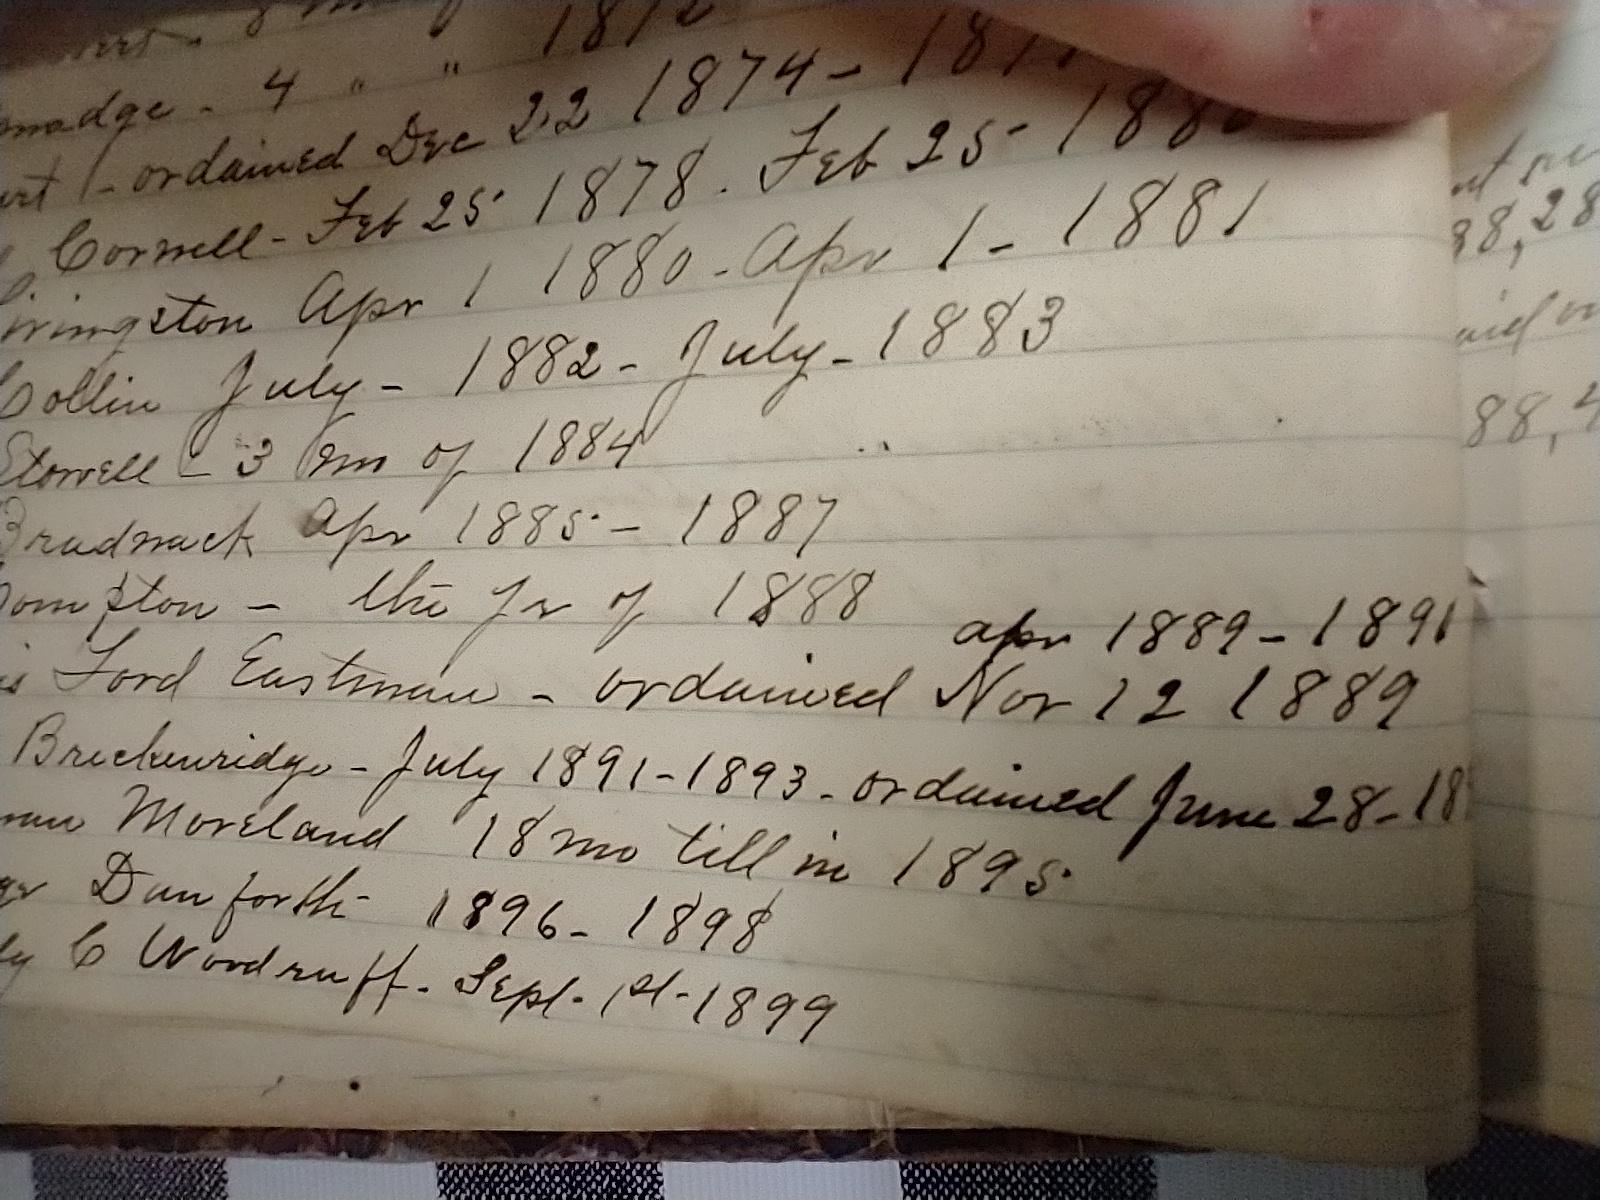 8 m of 1872
madge - 4 " " 
- ordained Dec 22 1874 - 187
Cornell - Feb 25 1878 - Feb 25 - 1880
ivingston Apr 1 1880 - Apr 1 - 1881
Collin July - 1882 - July - 1883
Stowell - 3 mo of 1884
Bradnack Apr 1885 - 1887
ompton - the yr of 1888
apr 1889 - 1891
is Ford Eastman - ordained Nov 12 1889
Breckenridge - July 1891 - 1893 - ordained June 28 - 18
Moreland 18 mo till in 1895
ger Danforth - 1896 - 1898
ly C Woodruff - Sept - 1st - 1899
88,28
88,4